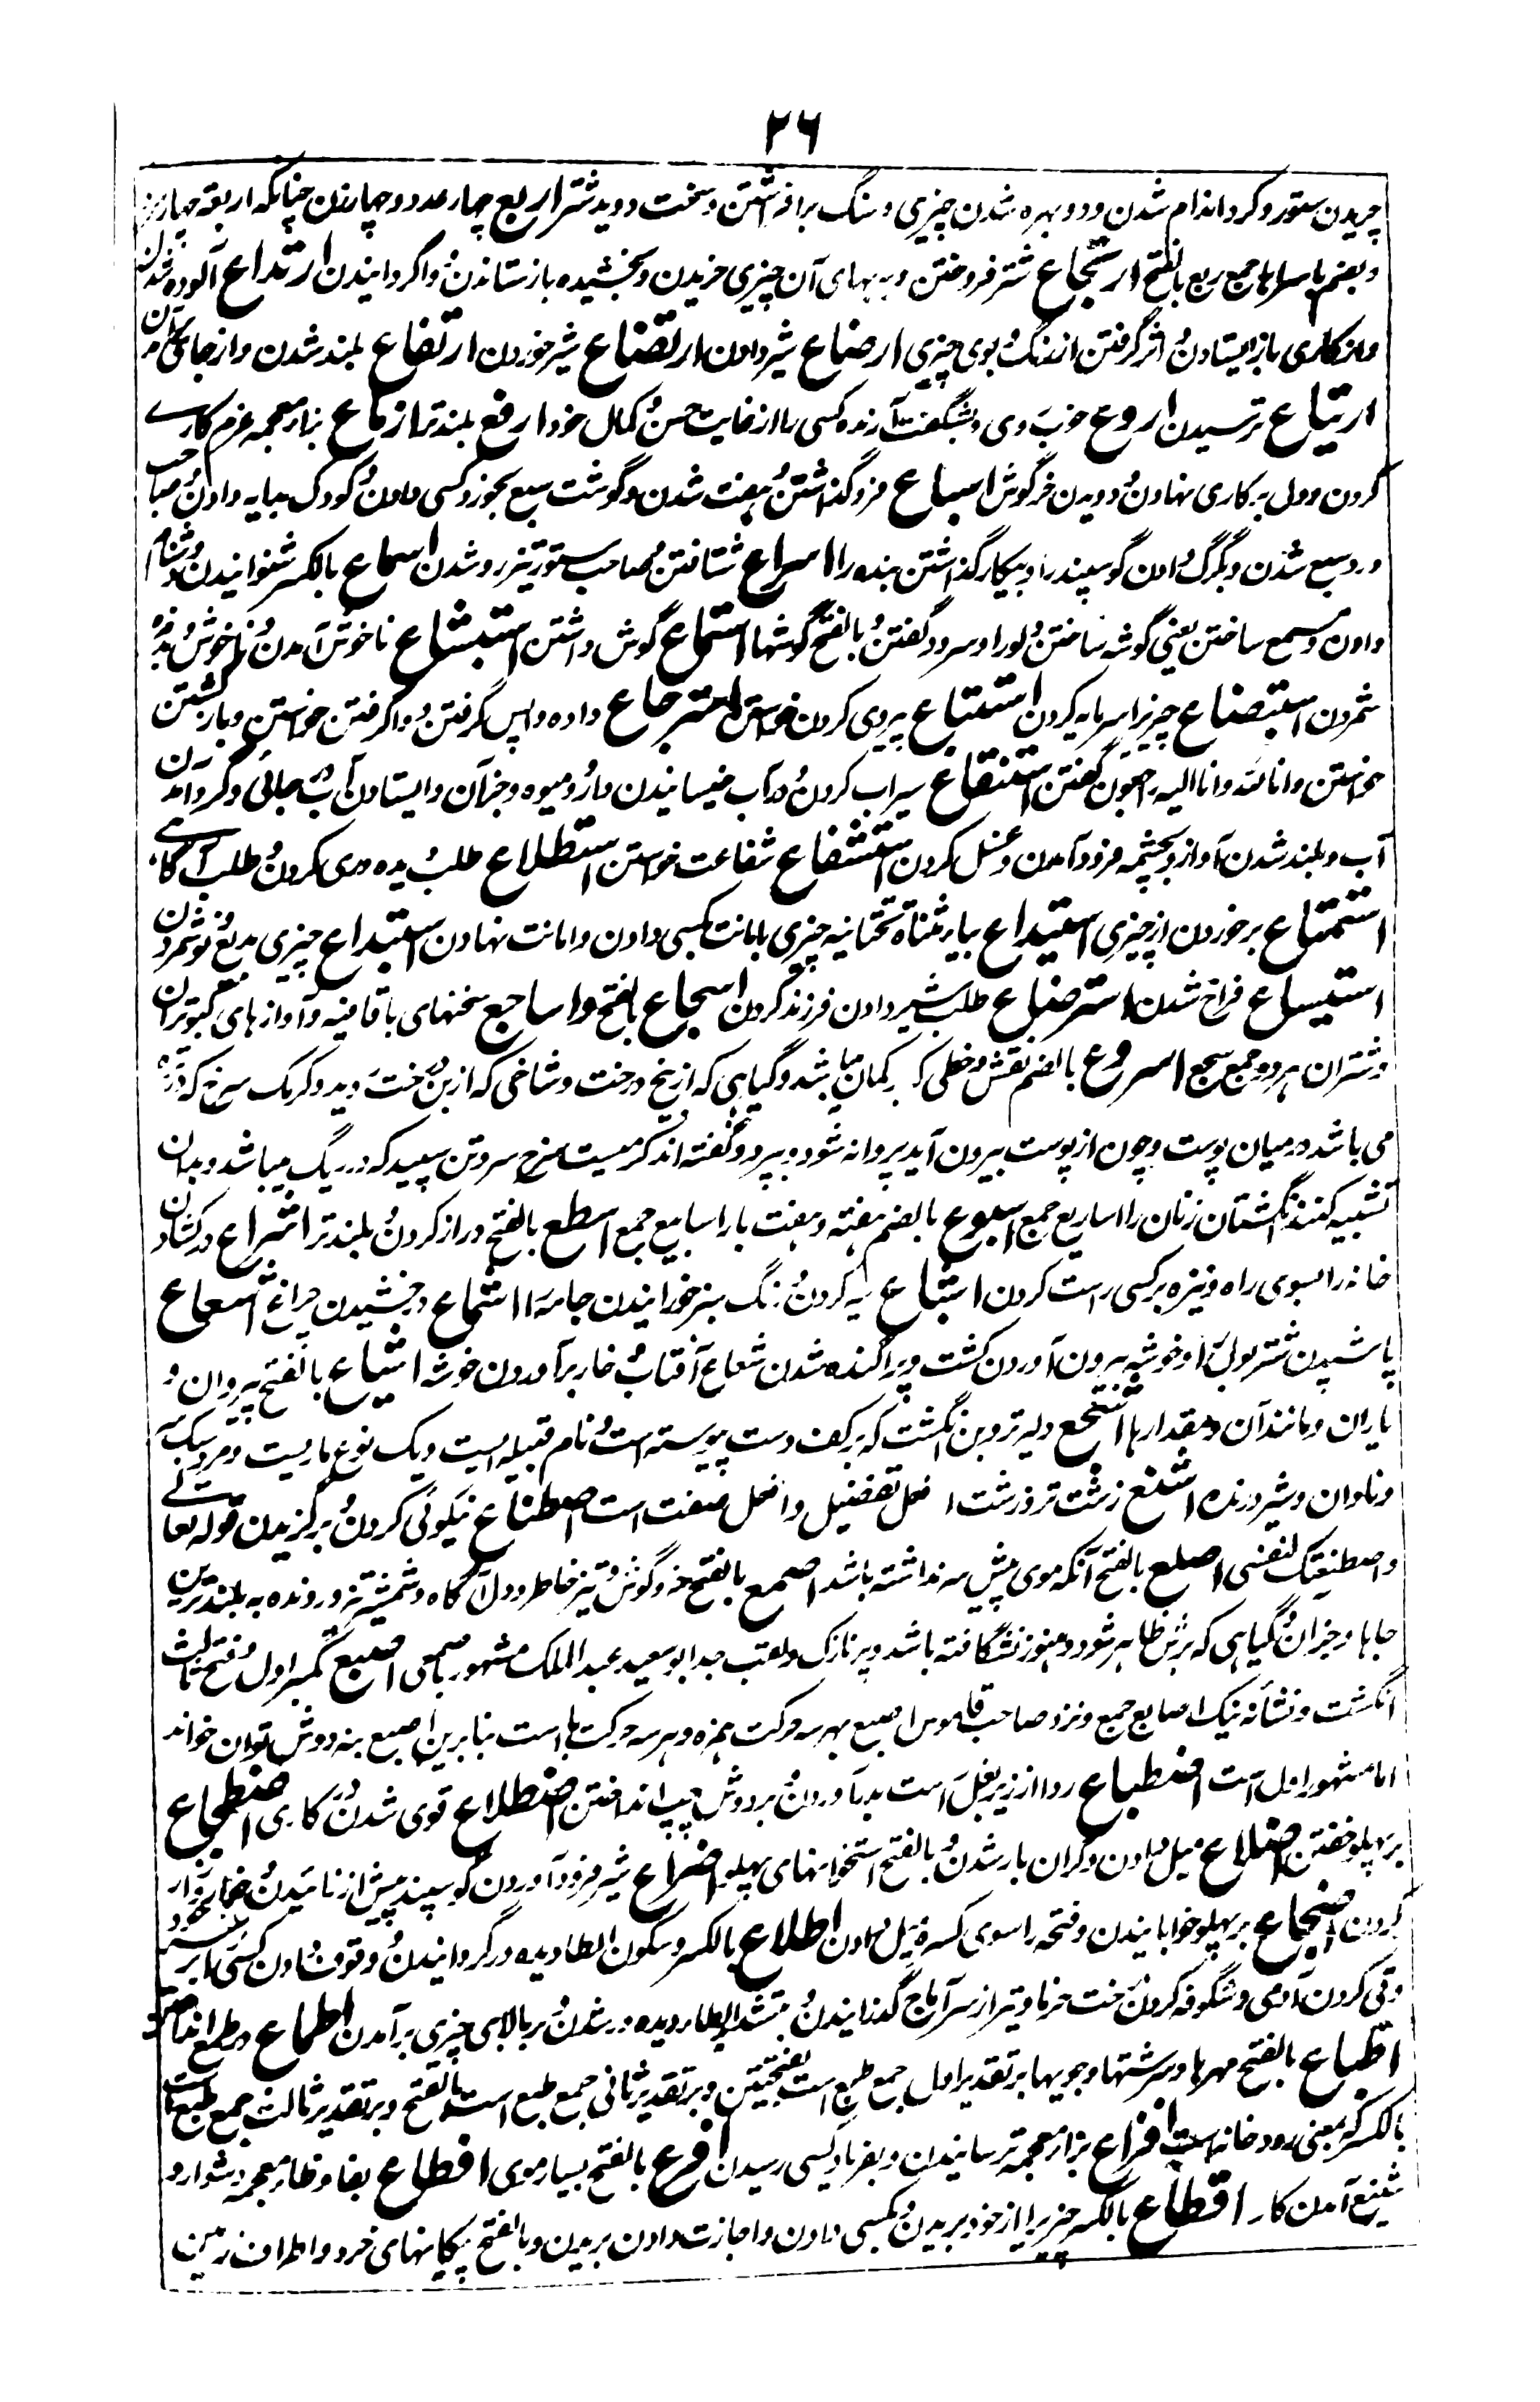 ٢٦
چریدن ستور و گرد اندام شدن و دو بهره شدن چیزی و سنگ برافراشتن و سخت دویدن شتر اربع چهار عدد و چهار زن چنانکه اربعة چهار مرد
و بضم با سراها جمع ربع بالفتح ارتجاع شتر فروختن و به بهای آن چیزی خریدن و بخشیده باز ستاندن و واگردانیدن ارتداع آلوده شدن
و از کاری باز ایستادن و اثر گرفتن از رنگ و بوی چیزی ارضاع شیر دادن ارتضاع شیر خوردن ارتفاع بلند شدن و از جای
ارتیاع ترسیدن اروع خوب روی و بشگفت آرنده کسی را از غایت حسن و کمال خود ارفع بلندتر ازماع بزاء معجمه عزم کاری
کردن و دل بر کاری نهادن و دویدن خرگوش اسباع فرو گذاشتن و هفت شدن و گوشت سبع بخورد کسی دادن و کودک بدایه دادن و صاحب
درد سبع شدن و بگرگ دادن گوسپند را و بیکار گذاشتن بنده را اسراع شتافتن و صاحب ستور تیزرو شدن اسماع بالکسر شنوانیدن و دشنام
دادن و مسمع ساختن یعنی گوشه ساختن دلو را و سرود گفتن و بالفتح گوشها استماع گوش داشتن استبشاع ناخوش آمدن و ناخوش و بدمزه
شمردن استبضاع چیزی را سرمایه کردن استتباع پیروی کردن خواستن استرجاع داده واپس گرفتن و واگرفتن خواستن و بازگشتن
خواستن و انا لله و انا الیه راجعون گفتن استنقاع سیراب کردن و در آب خیسانیدن دارو و میوه و جز آن و ایستادن آب در جائی و گردآمدن
آب و بلند شدن آواز و بچشمه فرود آمدن و غسل کردن استشفاع شفاعت خواستن استطلاع طلب دیده وری کردن و طلب آگاهی
استمتاع برخوردن از چیزی استیداع بیاء مثناة تحتانیه چیزی بامانت بکسی دادن و امانت نهادن استبداع چیزی بدیع و نو شمردن
استیساع فراخ شدن استرضاع طلب شیر دادن فرزند کردن اسجاع بالفتح و اساجیع سخنهای با قافیه و آوازهای کبوتران
و شتران هر دو جمع سجع اسروع بالضم نقش و خطی که بر کمان میباشد و گیاهی که از بیخ درخت و شاخی که از بن درخت روید و کرمک سرخ که در تره
می باشد در میان پوست و چون از پوست بیرون آید پروانه شود و بپرد و گفته اند کرمیست سرخ سر و تن سپید که در ریگ میباشد و بدان
تشبیه کنند انگشتان زنان را اساریع جمع اسبوع بالضم هفته و هفت بار اسابیع جمع اسطع بالفتح دراز گردن و بلندتر اشراع در گشادن
خانه را بسوی راه و نیزه بر کسی راست کردن اشباع سیر کردن و رنگ سیر خورانیدن جامه را اشماع درخشیدن چراغ اشعاع
پاشیدن شتر بول را و خوشه بیرون آوردن کشت و پراگنده شدن شعاع آفتاب و خار برآوردن خوشه اشیاع بالفتح پیروان و
یاران و مانند آن و مقدارها اشجع دلیرتر و بن انگشت که بر کف دست پیوسته است و نام قبیله ایست و یک نوع ماریست و مرد سبک
و نادان و شیر درنده اشنع زشت تر و زشت افعل تفضیل و افعل صفت است اصطناع نیکوئی کردن و برگزیدن قوله تعالی
و اصطنعتک لنفسی اصلع بالفتح آنکه موی پیش سر نداشته باشد اصمع بالفتح خرد گوش و تیز خاطر و دل آگاه و شمشیر تیز و رونده به بلندترین
جاها و جز آن و گیاهی که برش ظاهر شود و هنوز نشگافته باشد و پر نازک و لقب جد ابو سعید عبدالملک مشهور باصمعی اصبع بکسر اول و فتح ثالث
انگشت و نشانه نیک اصابع جمع و نزد صاحب قاموس اصبع بهر سه حرکت همزه و هر سه حرکت با است بنا برین اصبع بنه روش توان خواند
اما مشهور اول است اضطباع ردا از زیر بغل راست بدر آوردن و بر دوش چپ انداختن اضطلاع قوی شدن در کاری اضطجاع
بر پهلو خفتن اضلاع میل دادن و گران بار شدن و بالفتح استخوانهای پهلو اضراع شیر فرود آوردن گوسپند پیش از زائیدن و خوار و زار
کردن اضجاع بر پهلو خوابانیدن و فتحه را سوی کسره میل دادن اطلاع بالکسر و سکون الطا دیده ور گردانیدن و وقوف دادن کسی را بر
و قی کردن آدمی و شگوفه کردن درخت خرما و تیر از سر آماج گذرانیدن و بتشدید الطا دیده ور شدن و بر بالای چیزی برآمدن اطماع در طمع انداختن
اطباع بالفتح مهرها و سرشتها و جویها بر تقدیر اول جمع طبع است بفتحتین و بر تقدیر ثانی جمع طبع است بالفتح و بر تقدیر ثالث جمع طبع
بالکسر که بمعنی رودخانه است افزاع بزاء معجمه ترسانیدن و بفریاد کسی رسیدن افرع بالفتح بسیار موی افظاع بفا و ظاء معجمه دشوار و
شنیع آمدن کار اقطاع بالکسر چیزی را از خود بریدن و بکسی دادن و اجازت دادن بریدن و بالفتح پیکانهای خرد و اطراف زمین